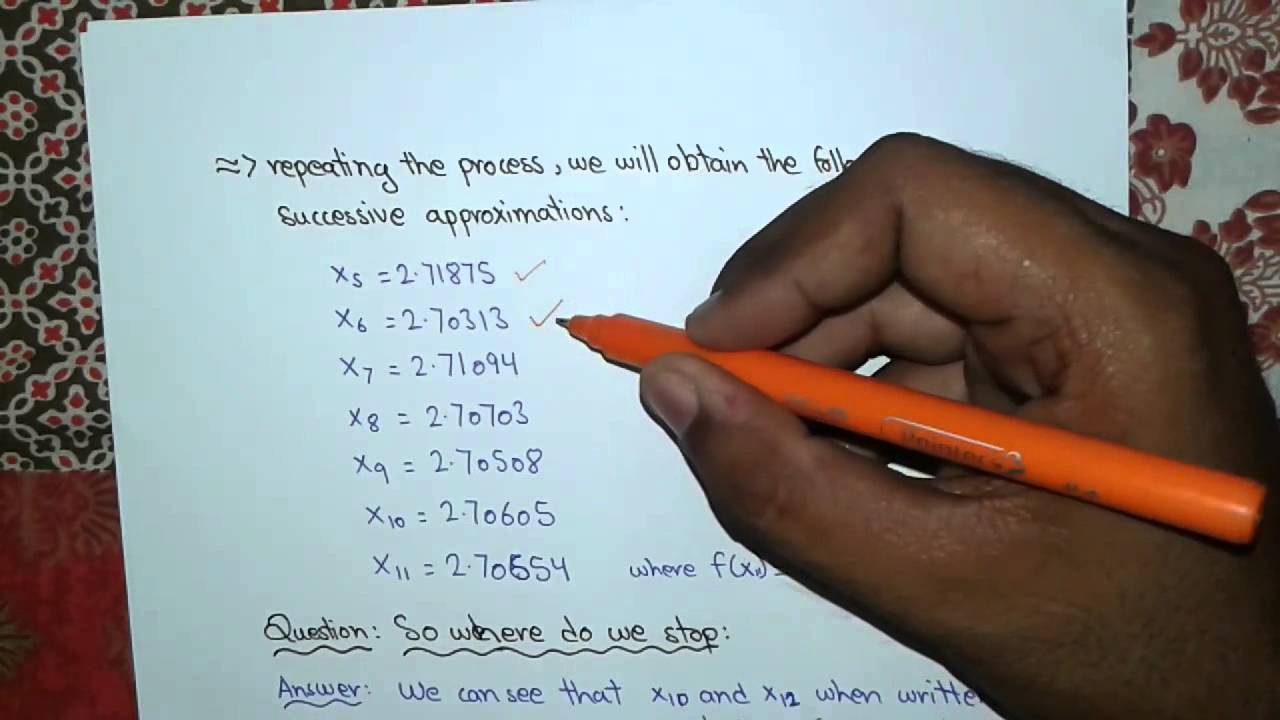 ≈> repeating the process, we will obtain the
successive approximations:
x5 = 2.71875 ✓
x6 = 2.70313 ✓
x7 = 2.71094
x8 = 2.70703
x9 = 2.70508
x10 = 2.70605
x11 = 2.70654 where f(x11) =
Question: So where do we stop:
Answer: We can see that x10 and x12 when
Pointer